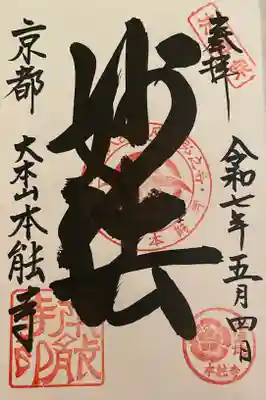 奉拝
令和七年五月四日
妙法
京都
大本山本能寺